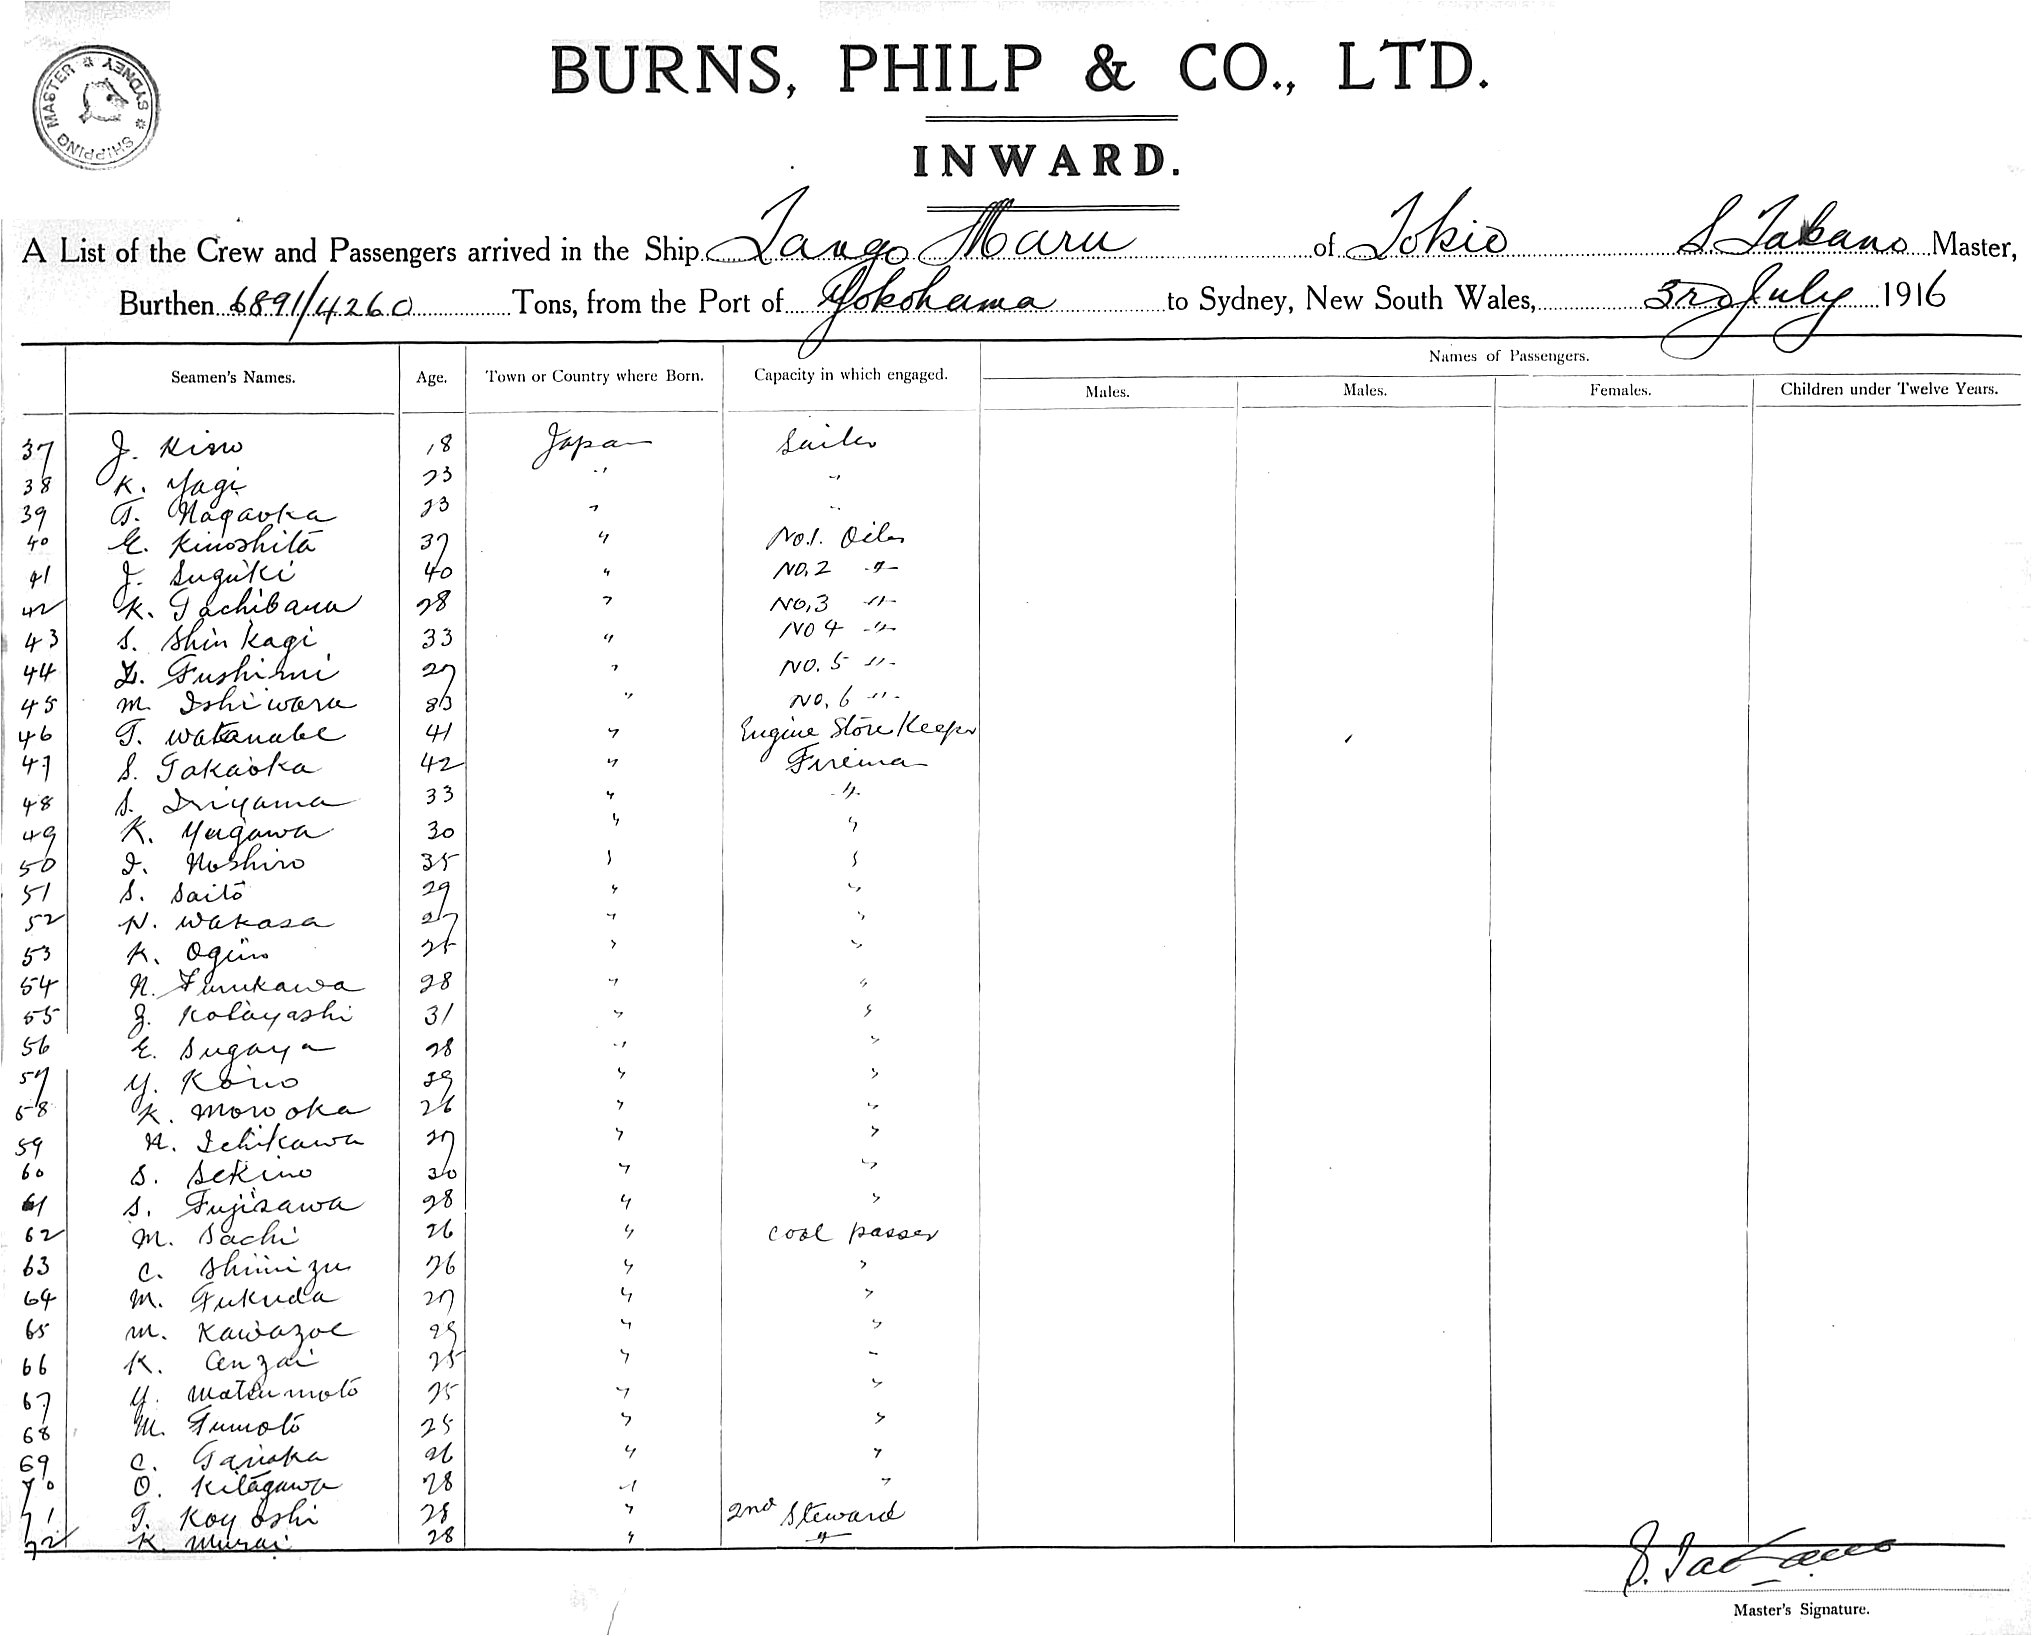 SHIPPING MASTER * SYDNEY *
BURNS, PHILP & CO., LTD.
INWARD.
A List of the Crew and Passengers arrived in the Ship Tango Maru of Tokio S. Takano Master,
Burthen 6891/4260 Tons, from the Port of Yokohama to Sydney, New South Wales, 3rd July 1916
Names of Passengers.
Seamen's Names. Age. Town or Country where Born. Capacity in which engaged. Males. Males. Females. Children under Twelve Years.
37 J. Kino 18 Japan Sailor
38 K. Yagi 23 " "
39 T. Nagaoka 23 " "
40 E. Kinoshita 37 " No.1. Oiler
41 J. Suguki 40 " No.2 "
42 K. Tachibana 28 " No.3 "
43 S. Shinkagi 33 " No 4 "
44 Fushimi 27 " No. 5 "
45 M. Ishiwara 33 " No. 6 "
46 T. Watanabe 41 " Engine Store Keeper
47 S. Takaoka 42 " Fireman
48 S. Iriyama 33 " "
49 K. Yagawa 30 " "
50 I. Noshiro 35 " "
51 S. Saito 29 " "
52 N. Wakasa 27 " "
53 K. Ogino 25 " "
54 N. Furukawa 28 " "
55 Z. Kobayashi 31 " "
56 E. Sugaya 28 " "
57 Y. Kono 29 " "
58 K. Morooka 26 " "
59 N. Ichikawa 27 " "
60 S. Sekino 30 " "
61 S. Fujisawa 28 " "
62 M. Sachi 26 " Coal passer
63 C. Shimizu 26 " "
64 M. Fukuda 27 " "
65 M. Kawazoe 29 " "
66 K. Anzai 25 " "
67 Y. Matsumoto 25 " "
68 M. Fumoto 25 " "
69 C. Tanaka 26 " "
70 O. Kitagawa 28 " "
71 T. Koyoshi 28 " 2nd Steward
72 K. Murai 28 " "
S. Takano
Master's Signature.